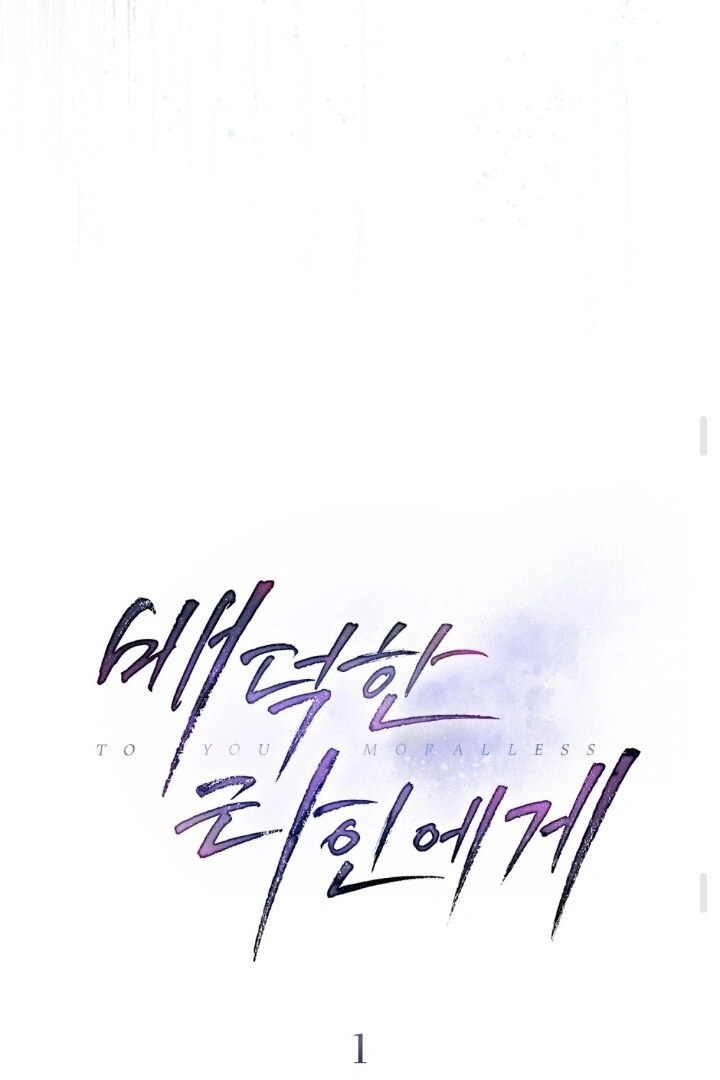 배덕한
TO YOU MORALLESS
타인에게
1